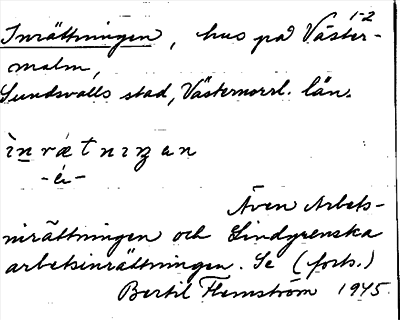 1-2
Inrättningen, hus på Väster-
malm,
Sundsvalls stad, Västernorrl. län.
ìnrǽtnıŋan
-é-
Även Arbets-
inrättningen och Lindgrenska
arbetsinrättningen. Se (forts.)
Bertil Flemström 1945.